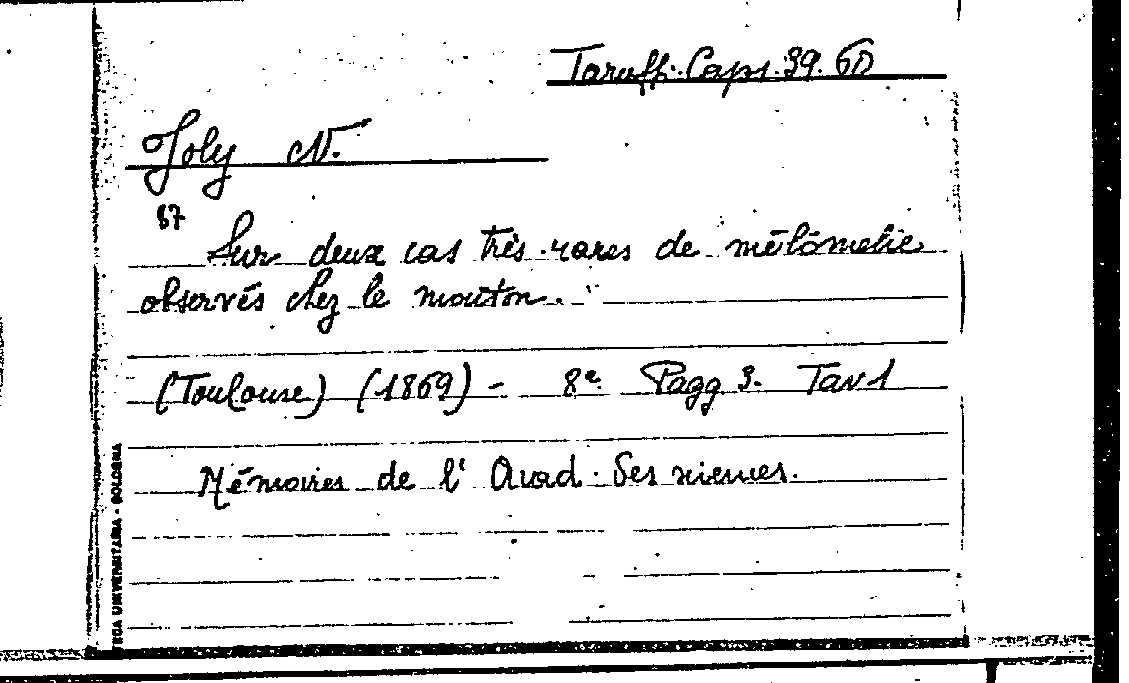 Taruffi. Caps. 39. 60
Joly N.
87
Sur deux cas très rares de mélomelie
observés chez le mouton.
(Toulouse) (1869) - 8º Pagg 3. Tav 1
Mémoires de l' Acad. Des sciences.
TECA UNIVERSITARIA - BOLOGNA